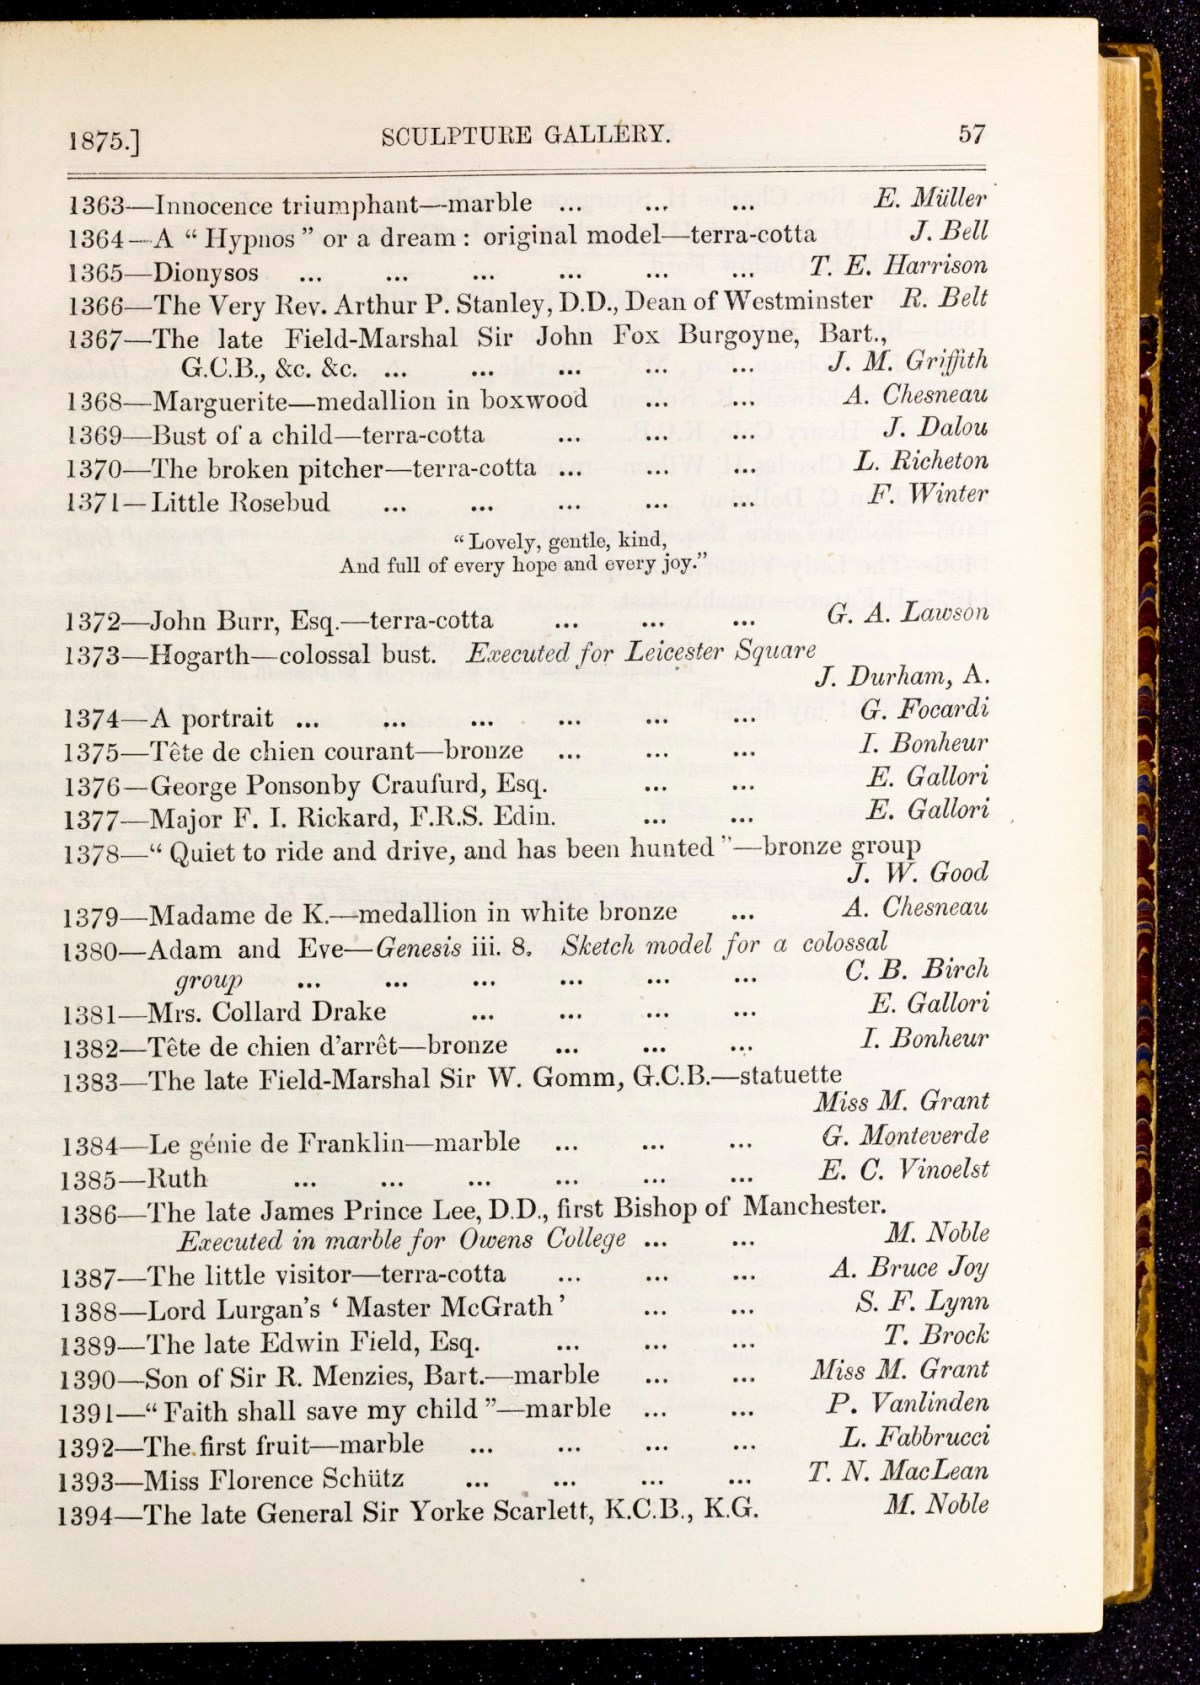 1875.] SCULPTURE GALLERY. 57
1363—Innocence triumphant—marble ... ... ... E. Müller
1364—A “ Hypnos ” or a dream : original model—terra-cotta J. Bell
1365—Dionysos ... ... ... ... ... ... T. E. Harrison
1366—The Very Rev. Arthur P. Stanley, D.D., Dean of Westminster R. Belt
1367—The late Field-Marshal Sir John Fox Burgoyne, Bart.,
G.C.B., &c. &c. ... ... ... ... ... J. M. Griffith
1368—Marguerite—medallion in boxwood ... ... A. Chesneau
1369—Bust of a child—terra-cotta ... ... ... J. Dalou
1370—The broken pitcher—terra-cotta ... ... ... L. Richeton
1371—Little Rosebud ... ... ... ... ... F. Winter
“ Lovely, gentle, kind,
And full of every hope and every joy.”
1372—John Burr, Esq.—terra-cotta ... ... ... G. A. Lawson
1373—Hogarth—colossal bust. Executed for Leicester Square
J. Durham, A.
1374—A portrait ... ... ... ... ... ... G. Focardi
1375—Tête de chien courant—bronze ... ... ... I. Bonheur
1376—George Ponsonby Craufurd, Esq. ... ... E. Gallori
1377—Major F. I. Rickard, F.R.S. Edin. ... ... E. Gallori
1378—“ Quiet to ride and drive, and has been hunted ”—bronze group
J. W. Good
1379—Madame de K.—medallion in white bronze ... A. Chesneau
1380—Adam and Eve—Genesis iii. 8. Sketch model for a colossal
group ... ... ... ... ... ... C. B. Birch
1381—Mrs. Collard Drake ... ... ... ... E. Gallori
1382—Tête de chien d’arrêt—bronze ... ... ... I. Bonheur
1383—The late Field-Marshal Sir W. Gomm, G.C.B.—statuette
Miss M. Grant
1384—Le génie de Franklin—marble ... ... ... G. Monteverde
1385—Ruth ... ... ... ... ... ... E. C. Vinoelst
1386—The late James Prince Lee, D.D., first Bishop of Manchester.
Executed in marble for Owens College ... ... M. Noble
1387—The little visitor—terra-cotta ... ... ... A. Bruce Joy
1388—Lord Lurgan’s ‘ Master McGrath ’ ... ... S. F. Lynn
1389—The late Edwin Field, Esq. ... ... ... T. Brock
1390—Son of Sir R. Menzies, Bart.—marble ... ... Miss M. Grant
1391—“ Faith shall save my child ”—marble ... ... P. Vanlinden
1392—The first fruit—marble ... ... ... ... L. Fabbrucci
1393—Miss Florence Schütz ... ... ... ... T. N. MacLean
1394—The late General Sir Yorke Scarlett, K.C.B., K.G. M. Noble